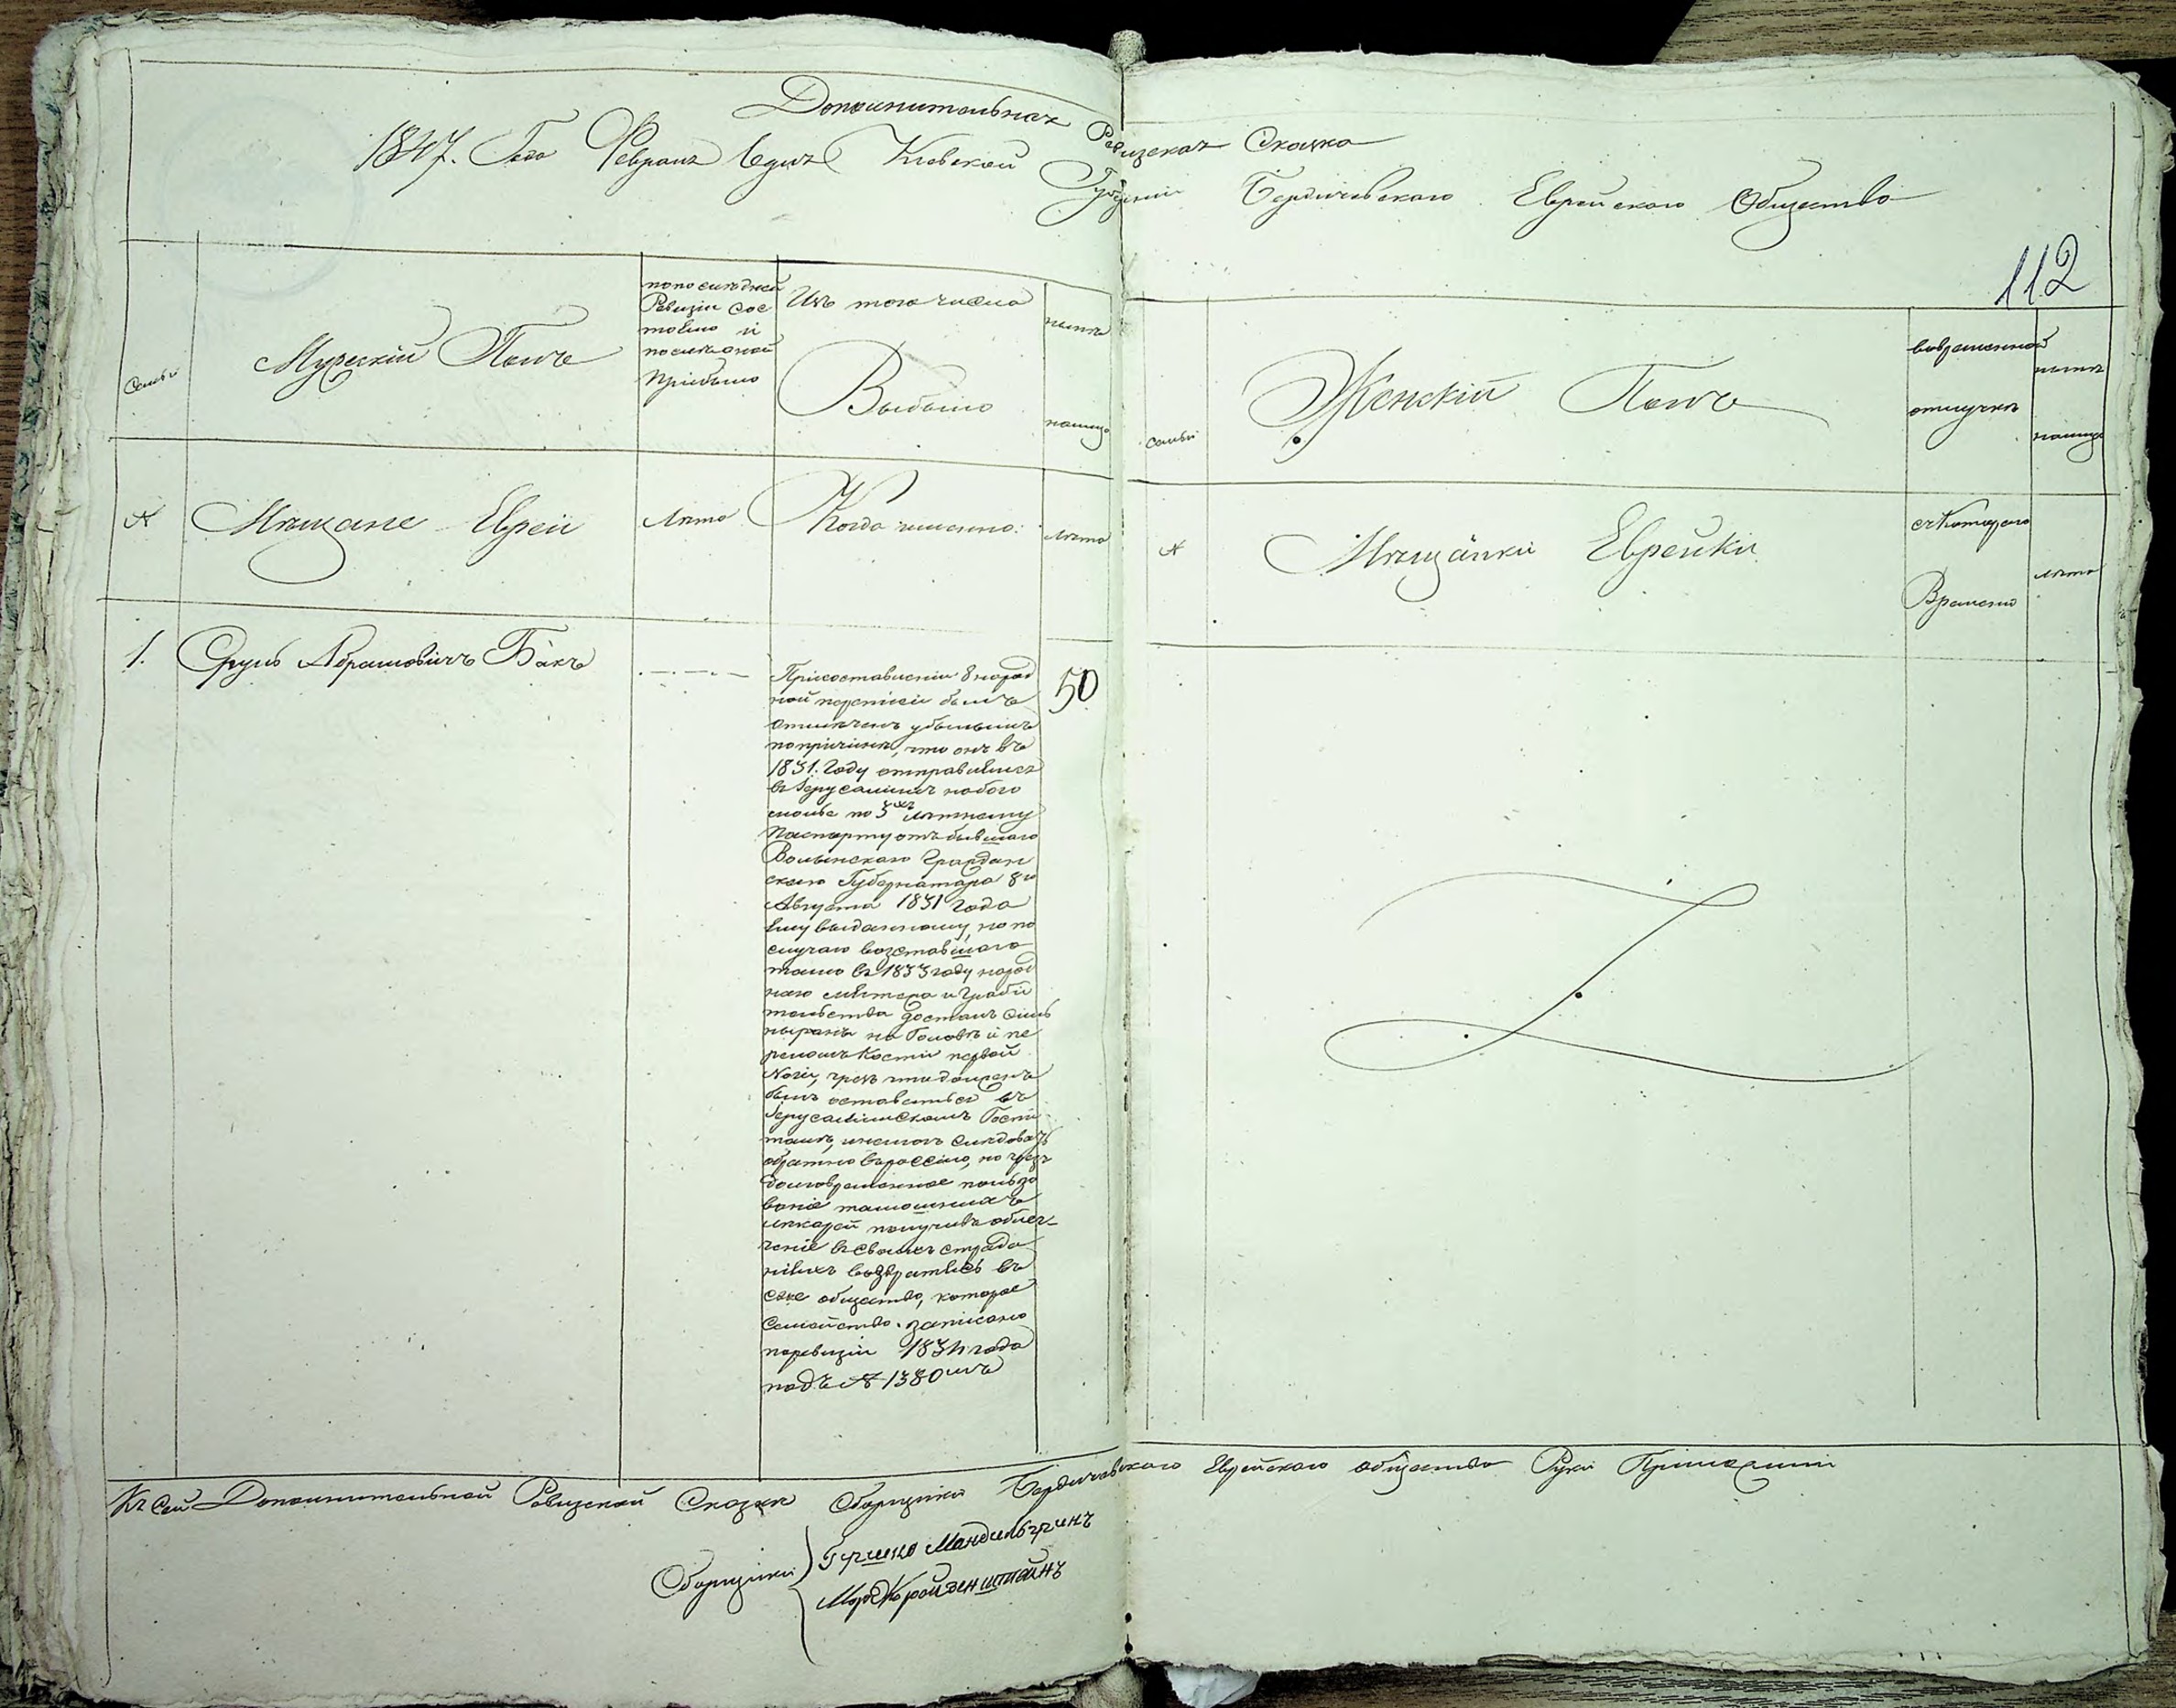 Дополнительная Ревизская Сказка
1847. Года Февраля дня Киевской Губернии Бердичевского Еврейского Общества
112
Семьи
Мужеский Полъ
по последней
Ревизии сос
тояло и
после оной
Прибыло
Изъ того числа
Выбыло
ныне
налицо
№
Мещане Евреи
Лета
Когда именно:
Лета
Семьи
Женский Полъ
во временной
отлучке
ныне
налицо
№
Мещанки Еврейки
съ котораго
Времени
лета
1. Сруль Абрамовичъ Бакъ
50
При составлении 8 народ
ной переписи былъ
отмеченъ убылымъ
по причине, что онъ въ
1831. Году отправился
въ Іерусалимъ на бого
молье по 3хъ летнему
Паспорту отъ бывшаго
Волынскаго Граждан
скаго Губернатора 8го
Августа 1831 Года
ему выданному, но по
случаю возставшаго
тамо въ 1833 году народ
наго мятежа и Граби
тельства досталъ силь
ныя раны на Голове и пе
реломъ Кости первой
Ноги, чрезъ что долженъ
былъ оставаться въ
Іерусалимскомъ Госпи
тале, и не могъ следовать
обратно въ россию, но чрезъ
долговременное пользо
вание тамошнихъ
лекарей получивъ облег-
чение въ своихъ страда
нияхъ возвратясь въ
свое общество, которое
Семейство записано
по ревизии 1834 года
подъ № 1380мъ
Къ сей Дополнительной Ревизской Сказке Сборщики Бердичевского Еврейского общества Руки Приложили
Сборщики Гершко Мандильгринъ
Морд Кройзенштейнъ